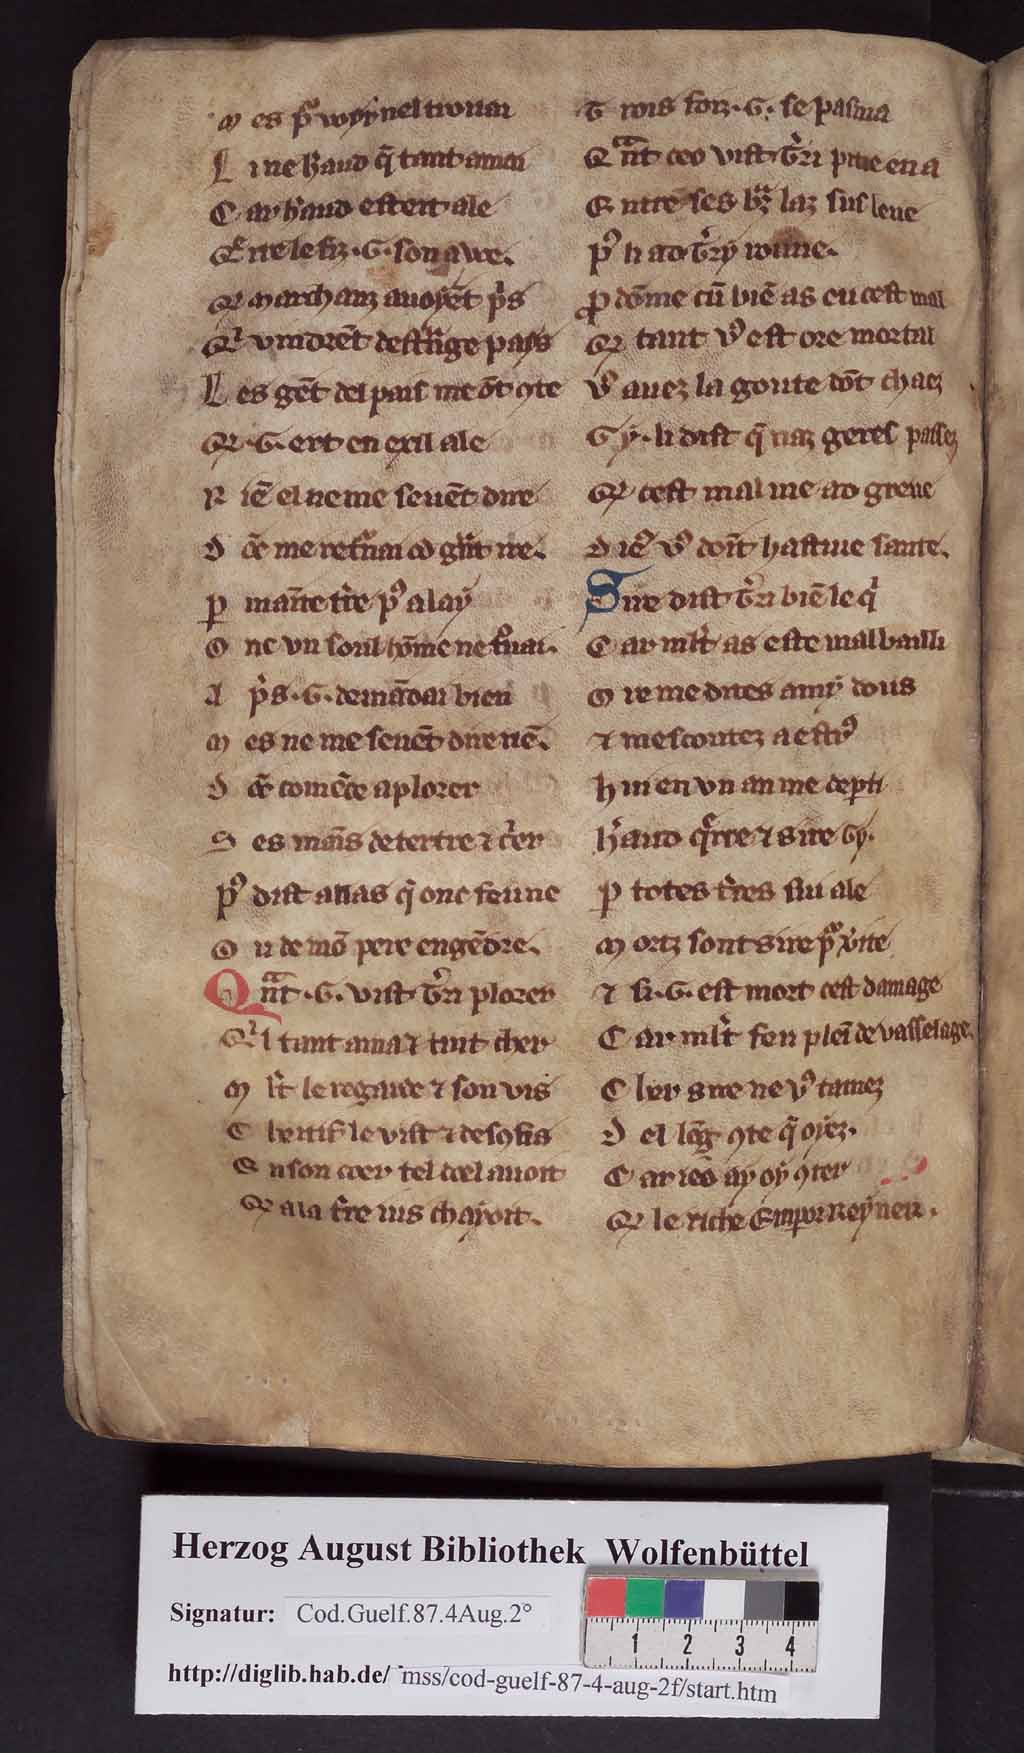 M es pᵃ wyỹnel trouai
L i ne h'aud q̃ tant amai
C ar h'aud esteit ale
Q̃rre le fiz .G. son awe.
Qͥ marchanz auoyẽt pͥs
Qͥ vindrẽt destᵃnge pays
L es gẽt del pais me õt 9te
Qͥ .G. ert en exil ale
R iẽ el ne me seuẽt dire
D õc me returnai od grãt ire.
P mainte t're pꝰ alaỹ
O nc un soul hõme ne tᵒuai.
A pͥs .G. demãdai bien
M es ne me seuẽt dire riẽ.
D õc comẽce a plorer
S es mains detertre ⁊ c'er
Pꝰ dist allas qͥ onc feu ne
O u de mõ pere engẽdre.
Qᵃnt .G. vist T'ri plorer
Qͥl tant ama ⁊ tint cher
M lt le regarde ⁊ son vis
C heitif le vist ⁊ desc9fis
E n son coer tel doel auoit
Qͥ a la t're ius chaỹoit.
T rois foiz .G. se pasma
Qᵃnt ceo vist T'ri pitie en a
E ntre ses bᵃz laz sus leue
Pꝰ li ad T'ry roune.
P dõme cũ biẽ as eu cest mal
Qͥ tant vꝰ est ore mortal
Vꝰ auez la goute dõt chaez
Gỹ li dist q̃ naz geres passez
Qͥ cest mal me ad greue
D ieꝰ vꝰ doĩt hastiue sante.
Sire dist T'ri biẽ le qͥ
C ar mlt as este mal bailli
O re me dites amỹ dous
⁊ mescoutez a estrꝰ
H ui en vn an me departi
H'aud q̃rre ⁊ sire Gy.
P totes t'res sui ale
M ortz sont sire pᵃ v'ite
⁊ si .G. est mort cest damage
C ar mlt feu pleĩ de vasselage.
C her sire ne vꝰ tamez
D el lõg 9te q̃ oỹez.
C ar ieo ay oỹ 9ter
Qͥ le riche Emperor Reỹner.
Herzog August Bibliothek Wolfenbüttel
Signatur: Cod.Guelf.87.4Aug.2°
1 2 3 4
http://diglib.hab.de/ mss/cod-guelf-87-4-aug-2f/start.htm